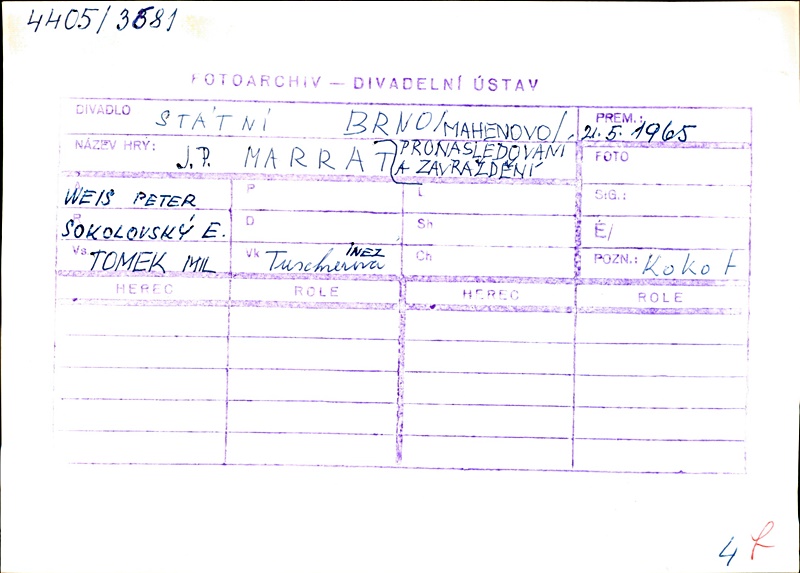 4405/3681
FOTOARCHIV — DIVADELNÍ ÚSTAV
DIVADLO STÁTNÍ BRNO/MAHENOVO/. PREM.: 21.5.1965
NÁZEV HRY: J.P. MARRAT PRONÁSLEDOVÁNÍ A ZAVRAŽDĚNÍ FOTO
WEIS PETER P L SIG.:
SOKOLOVSKÝ E. D Sh É/
Vs TOMEK MIL Vk Tuschnerová INEZ Ch POZN.: Kokot
HEREC ROLE HEREC ROLE
4